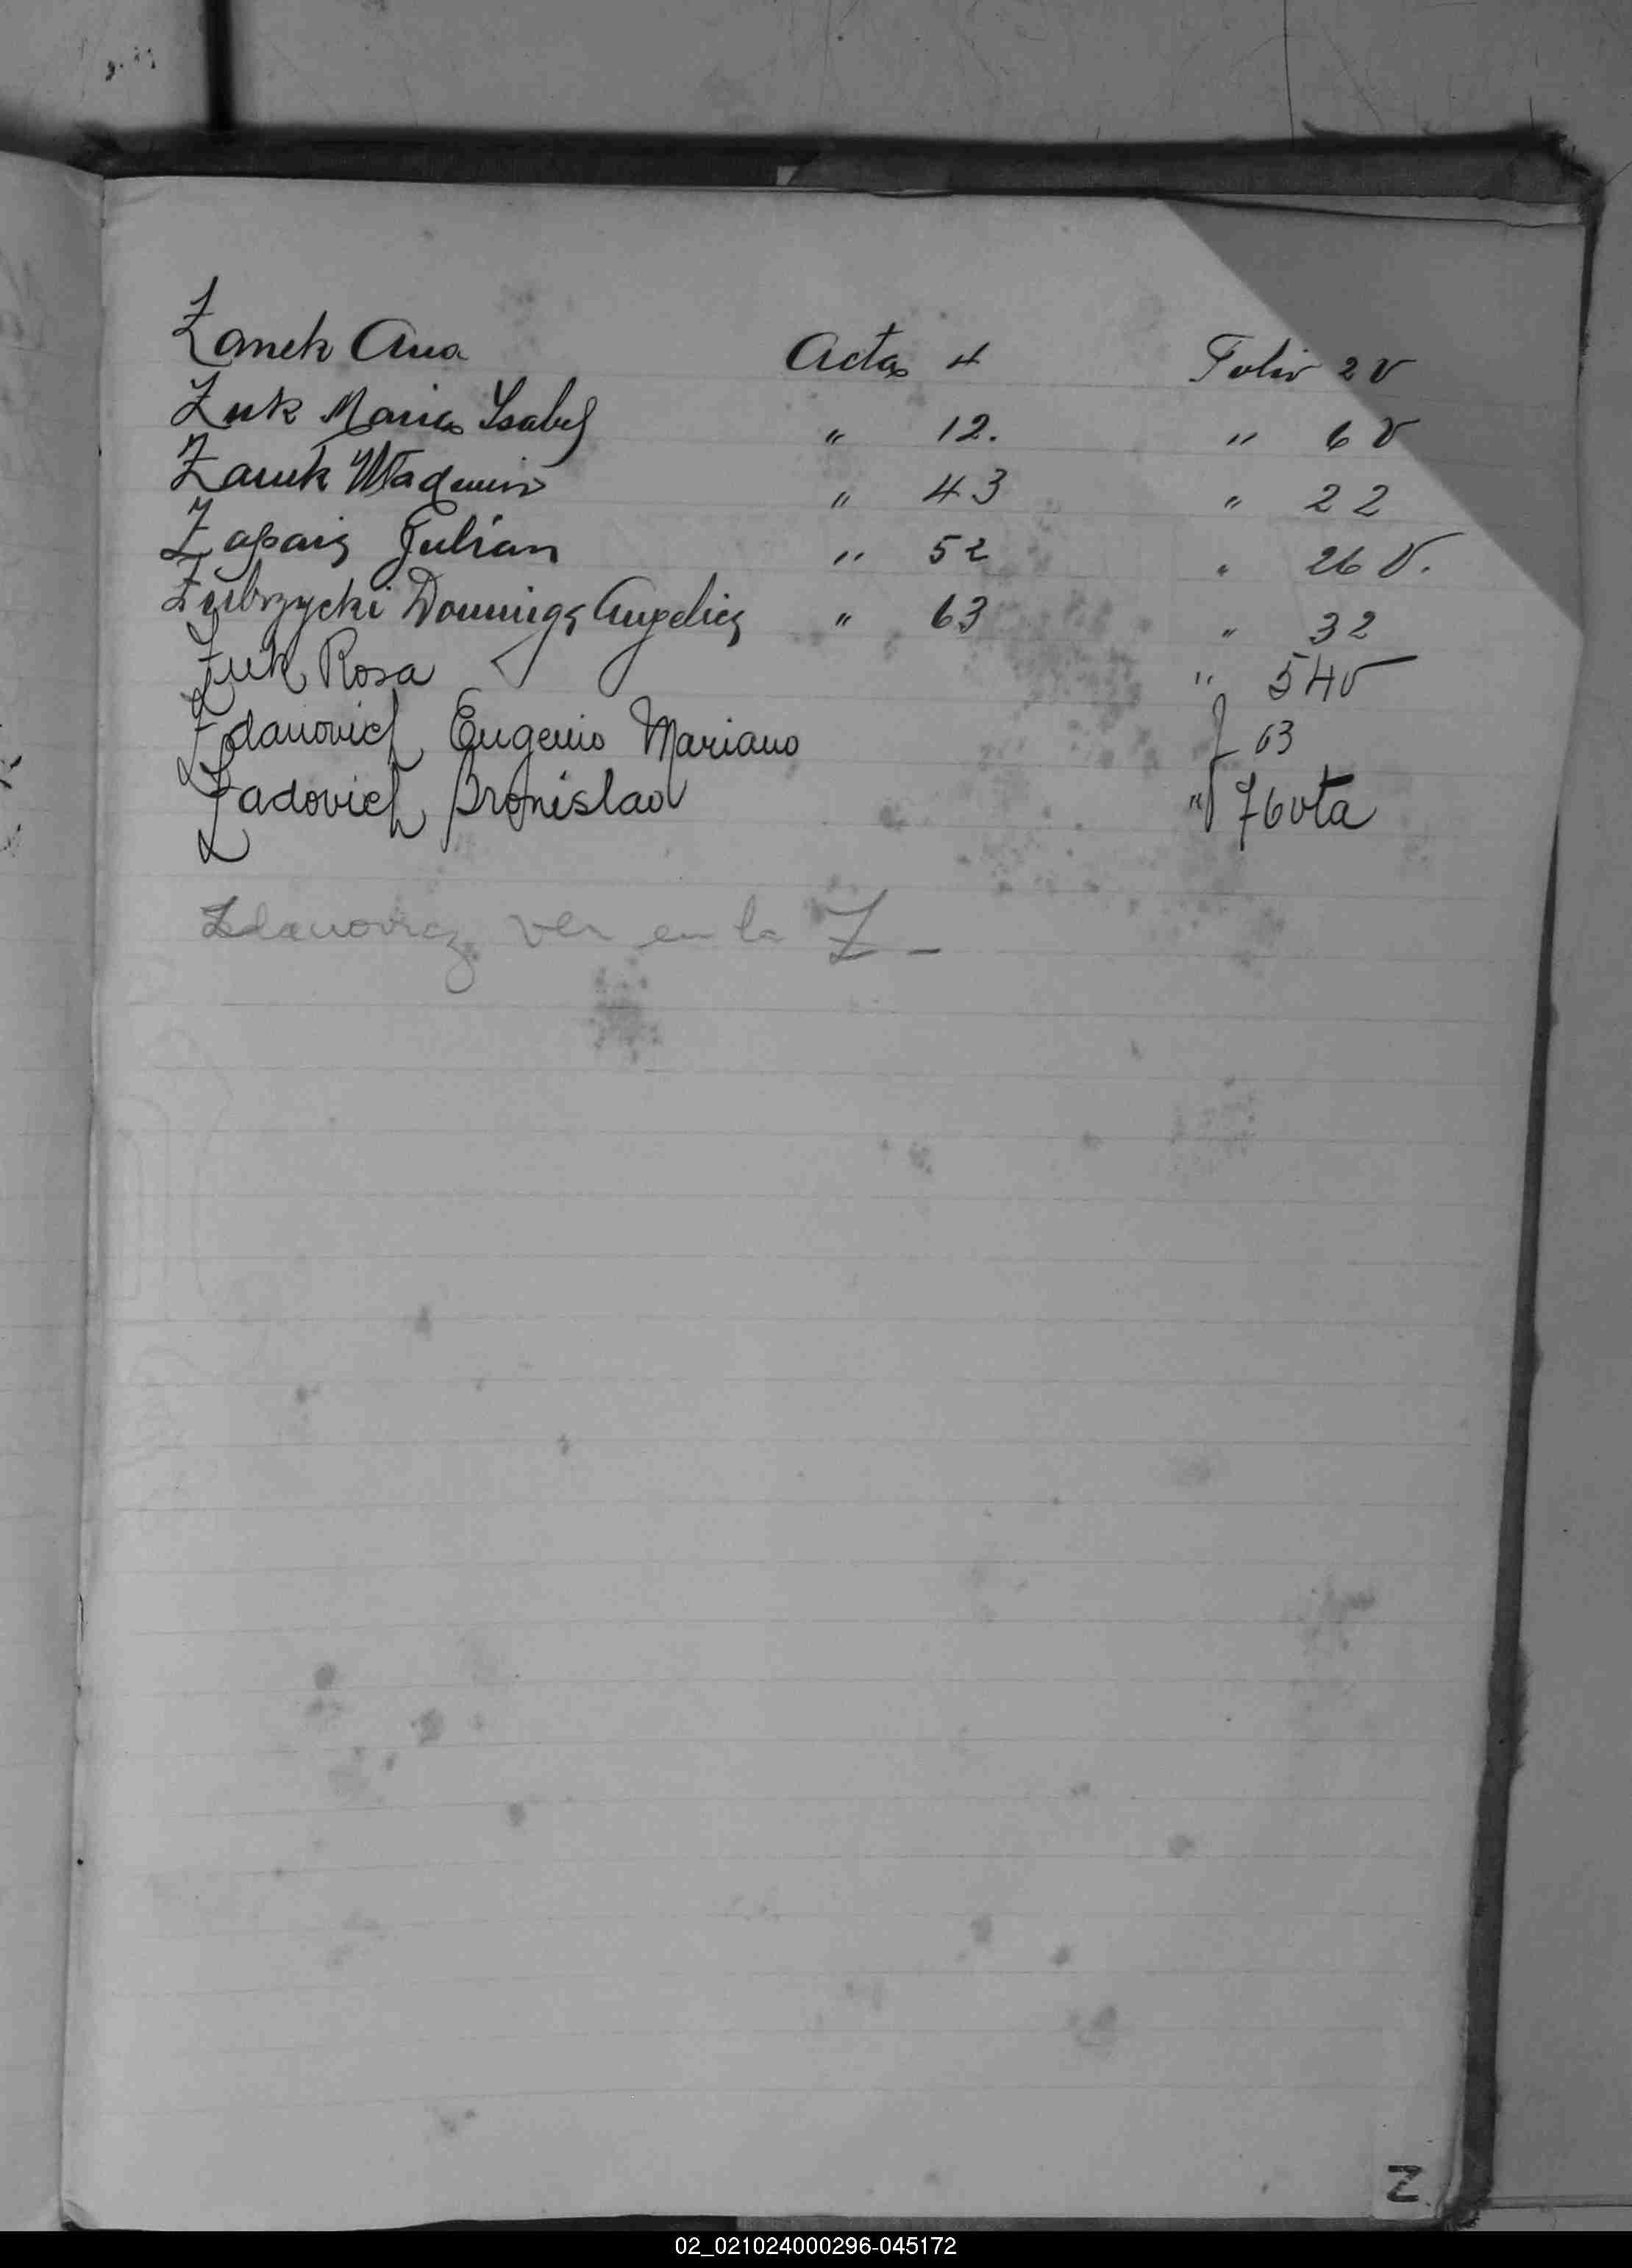 Zanek Ana Acta 4 Folio 2 v
Zuk Maria Ysabel " 12. " 6 v
Zauk Wladimiro " 43 " 22
Zapaiz Julian " 52 " 26 v.
Zubrzycki Dominga Angelica " 63 " 32
Zuk Rosa " 54v
Zdanovich Eugenio Mariano 63
Zadovich Bronislao " 76 vta
Zdanovicz ver en la Z -
Z
02_021024000296-045172